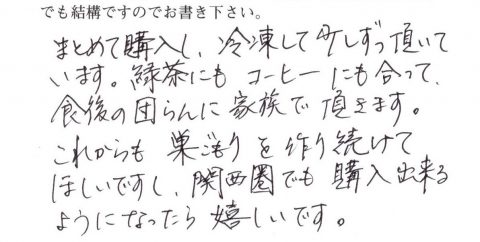 でも結構ですのでお書き下さい。
まとめて購入し、冷凍して少しずつ頂いて
います。緑茶にも コーヒーにも合って、
食後の団らんに家族で頂きます。
これからも 巣ごもり を作り続けて
ほしいですし、関西圏でも購入出来る
ようになったら嬉しいです。